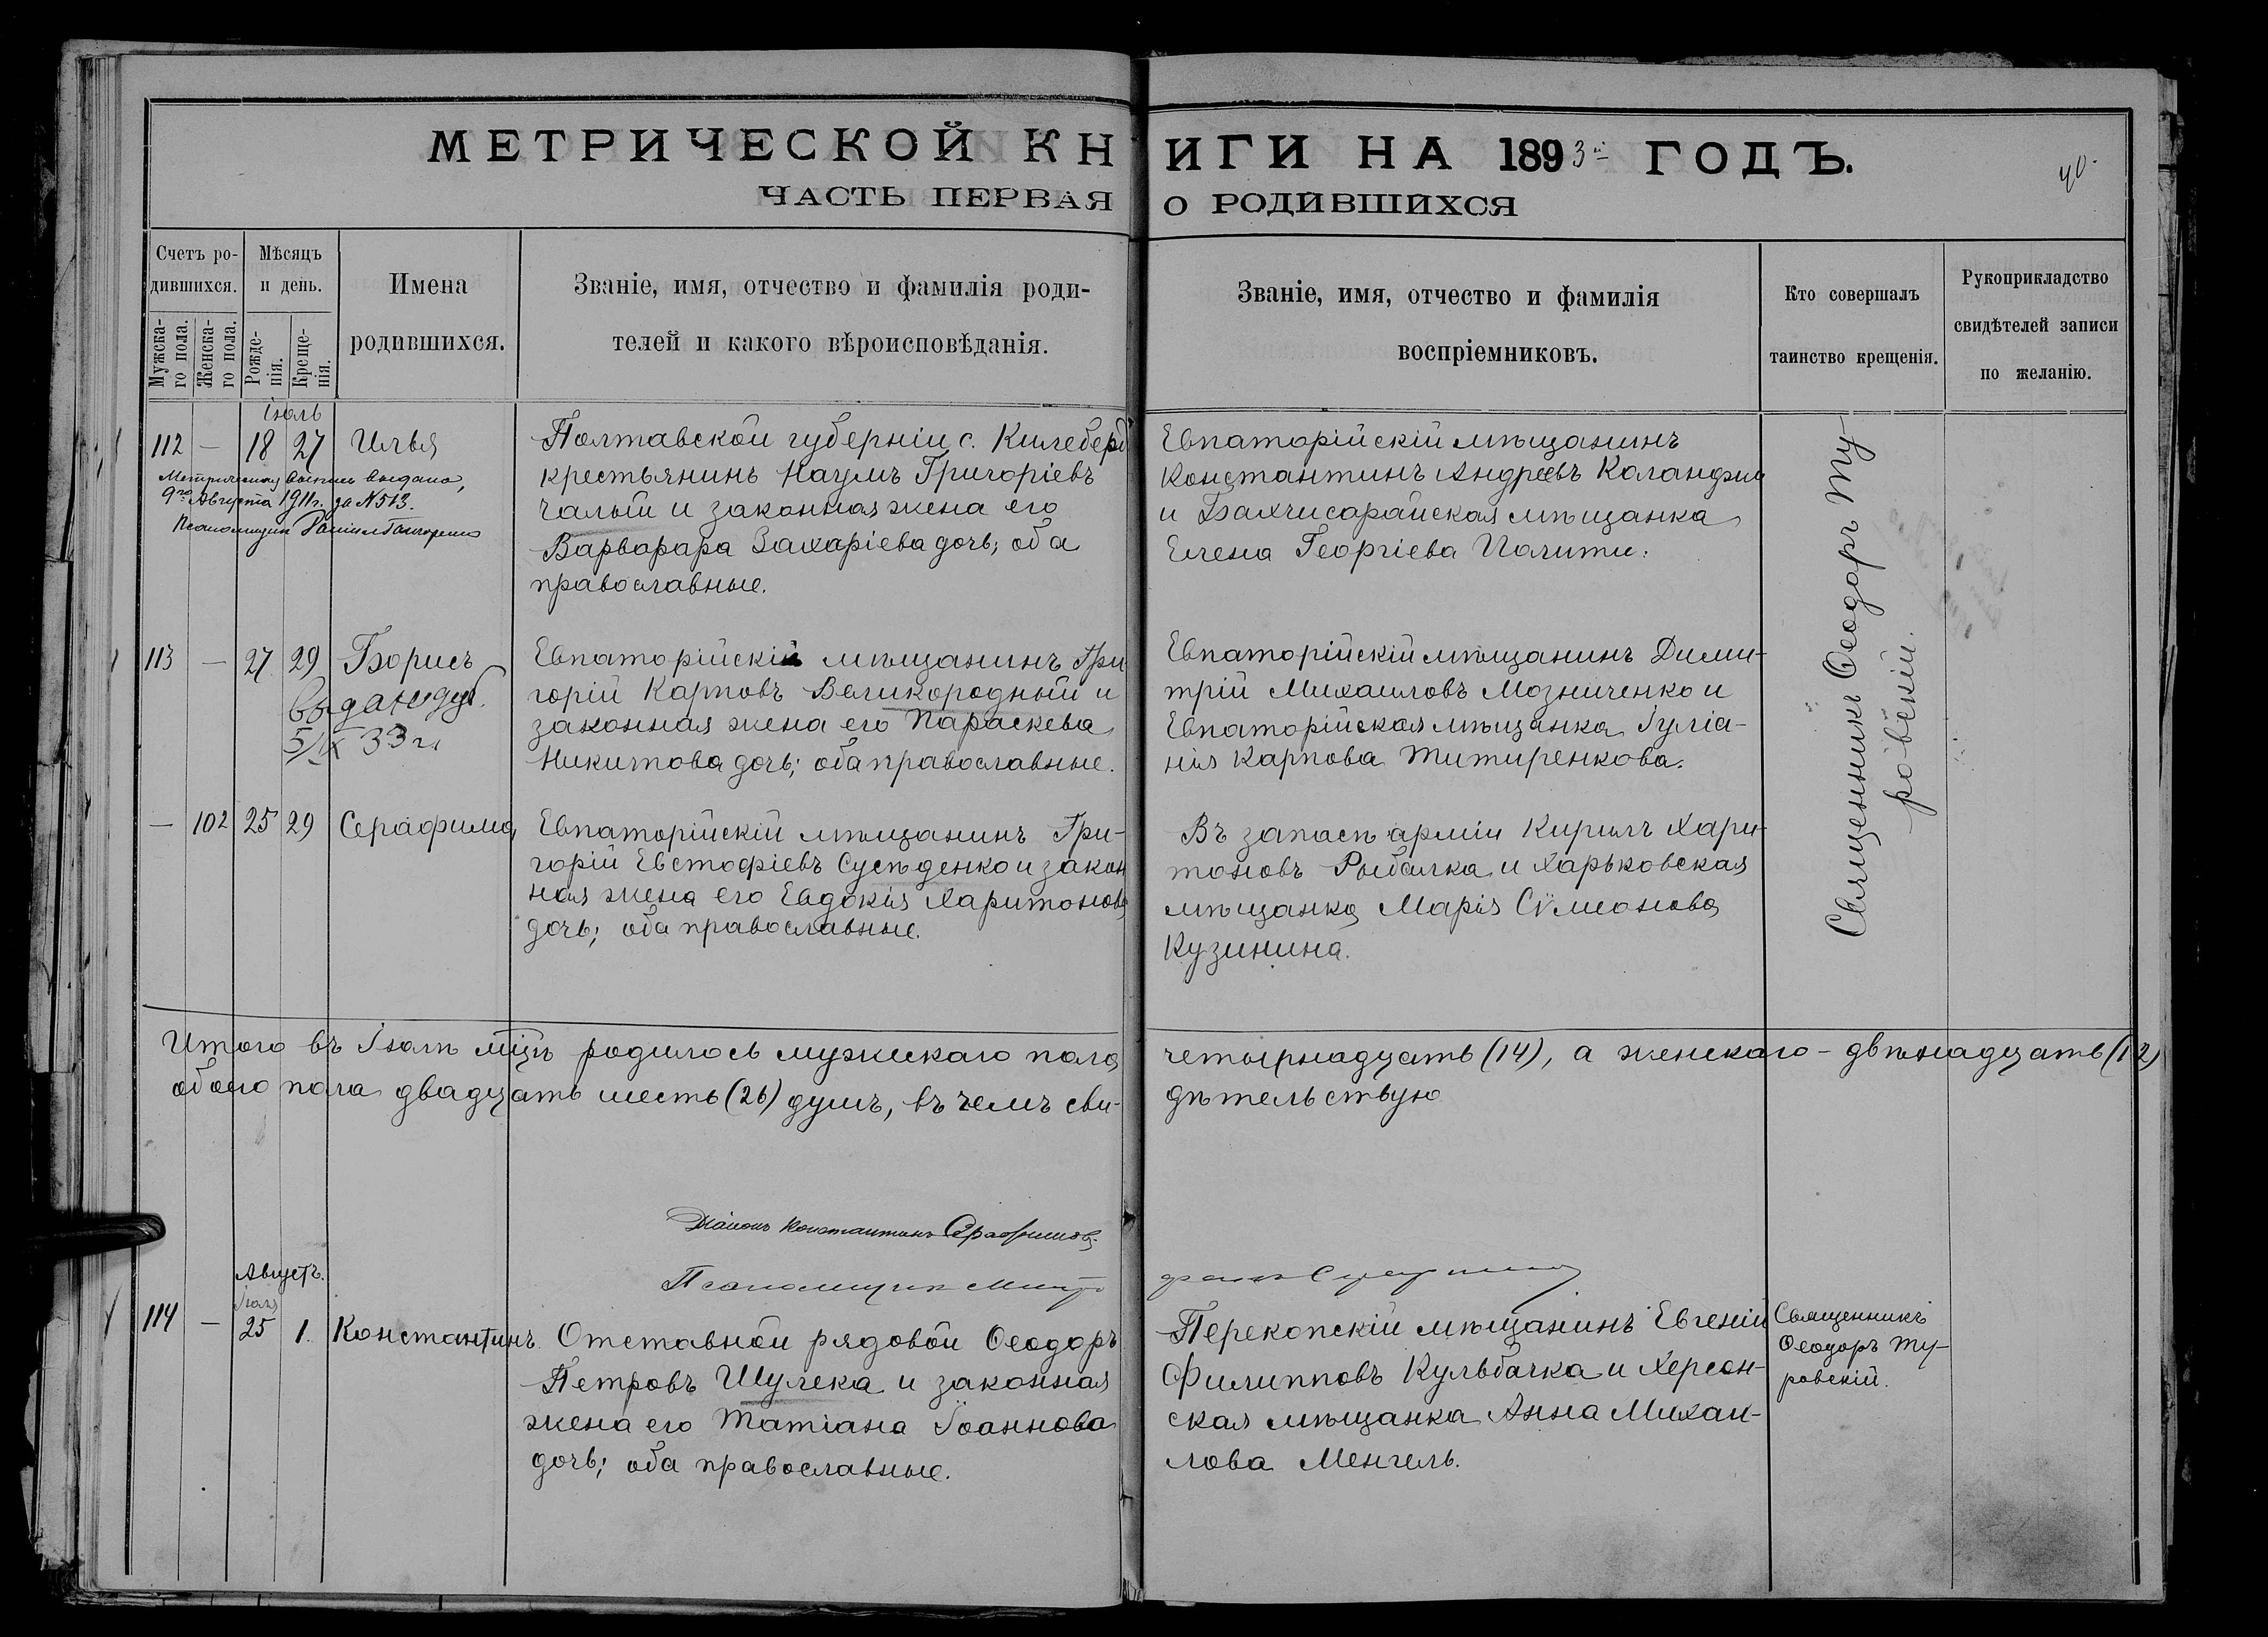 МЕТРИЧЕСКОЙ КНИГИ НА 1893й ГОДЪ.
40.
ЧАСТЬ ПЕРВАЯ О РОДИВШИХСЯ
Счетъ ро-
дившихся.
Мужска-
го пола.
Женска-
го пола.
Мѣсяцъ
и день.
Рожде-
нія.
Креще-
нія.
Имена
родившихся.
Званіе, имя, отчество и фамилія роди-
телей и какого вѣроисповѣданія.
Званіе, имя, отчество и фамилія
воспріемниковъ.
Кто совершалъ
таинство крещенія.
Рукоприкладство
свидѣтелей записи
по желанію.
Іюль
112 — 18 27 Илья
Метрическая выпись выдана,
9го Августа 1911 г. за N 513.
Псаломщикъ
Полтавской губерніи с. Килеберд
крестьянинъ Наумъ Григоріевъ
Чалый и законная жена его
Варварара Захаріева дочь; оба
православные.
Евпаторійскій мѣщанинъ
Константинъ Андреевъ Каланфи
и Бахчисарайская мѣщанка
Елена Георгіева Полити.
Священникъ Ѳеодоръ Ту-
ровскій.
113 — 27 29 Борисъ
выдано дуб.
5/IX 33 г.
Евпаторійскій мѣщанинъ Гри-
горій Карповъ Великородный и
законная жена его Параскева
Никитова дочь; оба православные.
Евпаторійскій мѣщанинъ Дими-
трій Михаиловъ Мозниченко и
Евпаторійская мѣщанка Іуліа-
нія Карпова Титиренкова.
— 102 25 29 Серафима
Евпаторійскій мѣщанинъ Гри-
горій Евстафіевъ Сусѣденко и закон
ная жена его Евдокія Харитонова
дочь; оба православные.
Въ запасѣ арміи Кирилъ Хари-
тоновъ Рыбалка и Харьковская
мѣщанка Марія Сѵмеонова
Кузинина.
Итого въ Іюлѣ мцѣ родилось мужескаго пола четырнадцать (14), а женскаго - двѣнадцать (12)
обоего пола двадцать шесть (26) душъ, въ чемъ сви- дѣтельствую
Діаконъ Константинъ Серафимовъ.
Псаломщикъ
Августъ.
Іюля
114 — 25 1. Константинъ.
Отставной рядовой Ѳеодоръ
Петровъ Шулека и законная
жена его Татіана Іоаннова
дочь; оба православные.
Перекопскій мѣщанинъ Евгеній
Филипповъ Кульбачка и Херсон-
ская мѣщанка Анна Михаи-
лова Менгель.
Священникъ
Ѳеодоръ Ту-
ровскій.